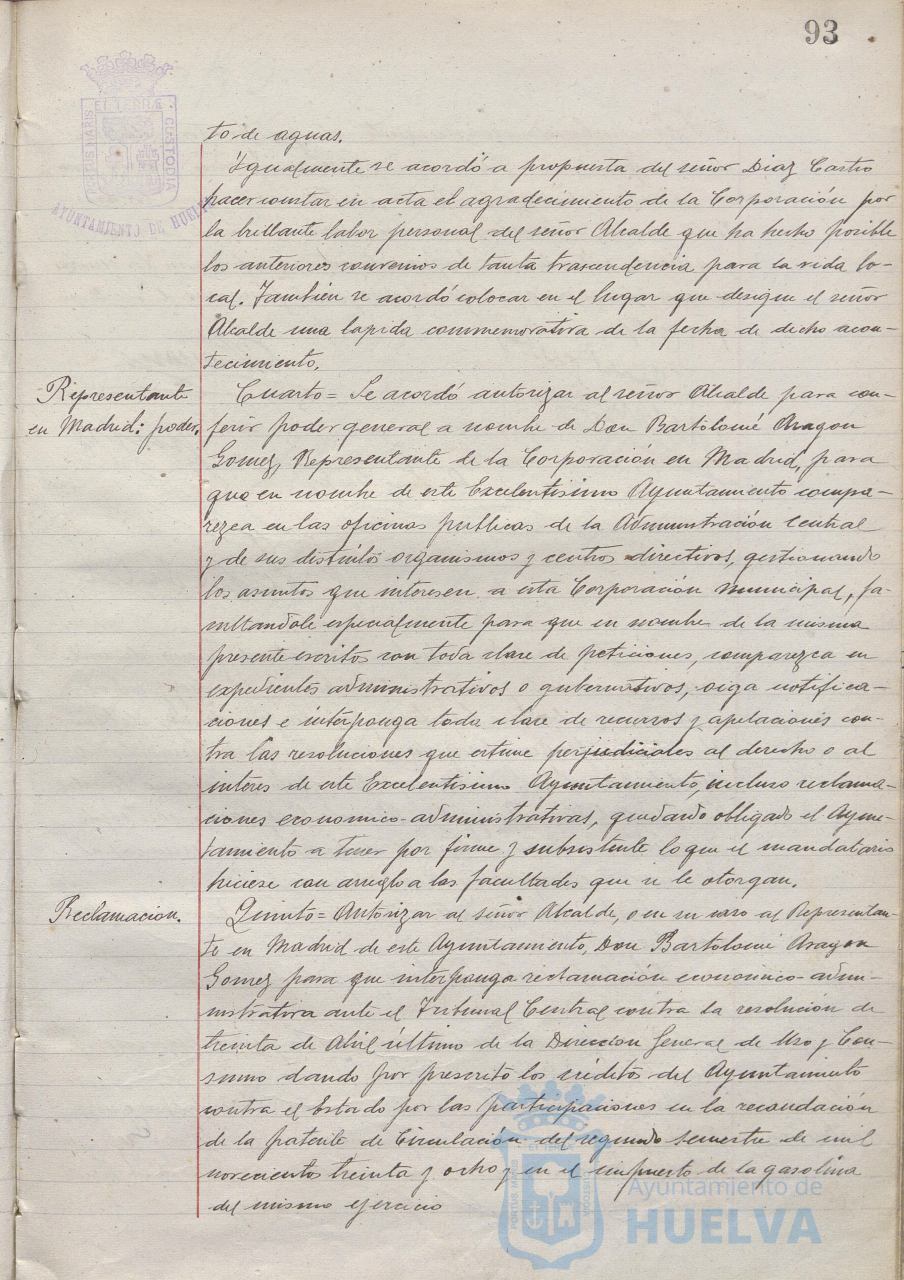 93
PORTUS MARIS ET TERRÆ CUSTODIA
AYUNTAMIENTO DE HUELVA
to de aguas.
Igualmente se acordó a propuesta del señor Diaz Castro
hacer constar en acta el agradecimiento de la Corporación por
la brillante labor personal del señor Alcalde que ha hecho posible
los anteriores convenios de tanta trascendencia para la vida lo-
cal. Tambien se acordó colocar en el lugar que designe el señor
Alcalde una lapida conmemorativa de la fecha de dicho acon-
tecimiento.
Representante
en Madrid: poder.
Cuarto = Se acordó autorizar al señor Alcalde para con-
ferir poder general a nombre de Don Bartolomé Aragon
Gomez, Representante de la Corporación en Madrid, para
que en nombre de este Excelentisimo Ayuntamiento compa-
rezca en las oficinas publicas de la Administración Central
y de sus distintos organismos y centros directivos, gestionando
los asuntos que interesen a esta Corporación municipal, fa-
cultandole especialmente para que en nombre de la misma
presente escritos con toda clase de peticiones, comparezca en
expedientes administrativos o gubernativos, oiga notifica-
ciones e interponga toda clase de recursos y apelaciones con-
tra las resoluciones que estime perjudiciales al derecho o al
interes de este Excelentisimo Ayuntamiento, incluso reclama-
ciones economico-administrativas, quedando obligado el Ayun-
tamiento a tener por firme y subsistente lo que el mandatario
hiciese con arreglo a las facultades que se le otorgan.
Reclamacion.
Quinto = Autorizar al señor Alcalde, o en su caso al Representan-
te en Madrid de este Ayuntamiento, Don Bartolomé Aragon
Gomez para que interponga reclamación economico-admi-
nistrativa ante el Tribunal Central contra la resolución de
treinta de Abril último de la Direccion General de Uso y Con-
sumo dando por prescrito los créditos del Ayuntamiento
contra el Estado por las participaciones en la recaudación
de la patente de Circulación del segundo semestre de mil
novecientos treinta y ocho y en el impuesto de la gasolina
del mismo ejercicio
Ayuntamiento de
HUELVA